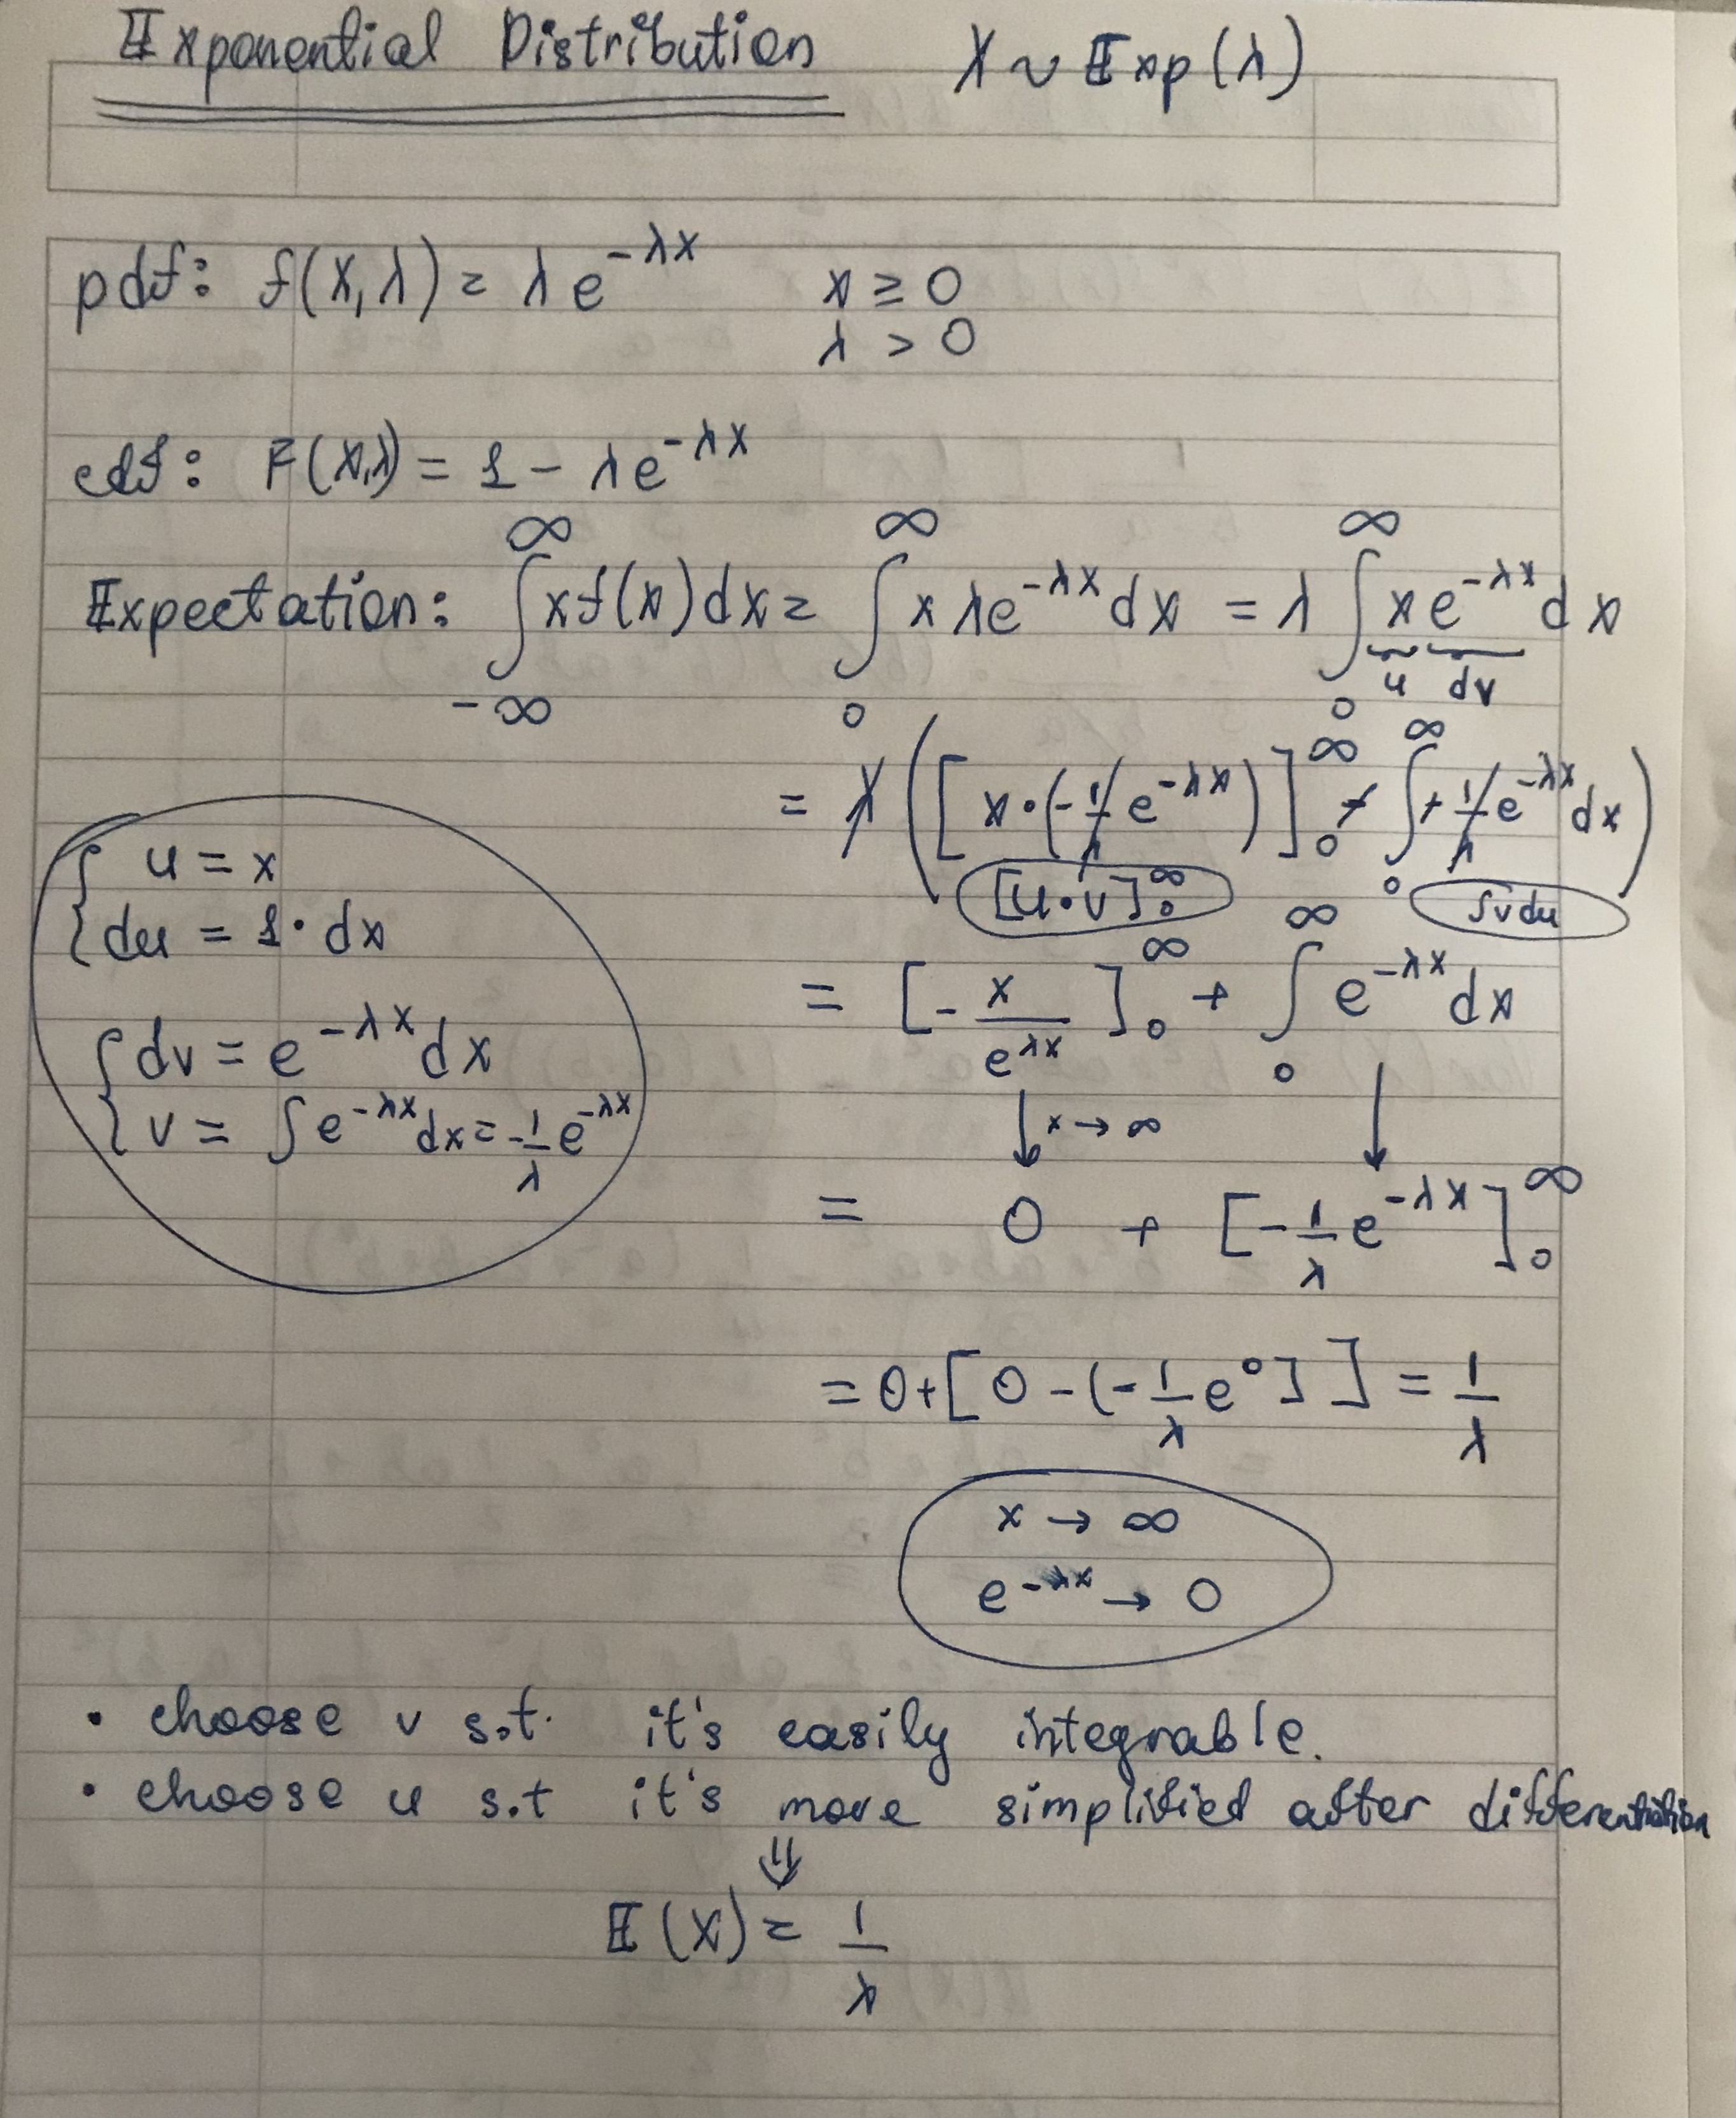 Exponential Distribution X ~ Exp(λ)
pdf: f(x,λ) = λe^{-λx} x ≥ 0
λ > 0
cdf: F(x,λ) = 1 - λe^{-λx}
Expectation: ∫_{-∞}^{∞} xf(x)dx = ∫_0^∞ xλe^{-λx}dx = λ∫_0^∞ xe^{-λx}dx
u dv
= λ([x·(-1/λ e^{-λx})]_0^∞ + ∫_0^∞ + 1/λ e^{-λx}dx)
[u·v]_0^∞ ∫vdu
u = x
du = 1·dx
dv = e^{-λx}dx
v = ∫e^{-λx}dx = -1/λ e^{-λx}
= [-x/e^{λx}]_0^∞ + ∫_0^∞ e^{-λx}dx
↓ x → ∞ ↓
= 0 + [-1/λ e^{-λx}]_0^∞
= 0 + [0 - (-1/λ e^0]] = 1/λ
x → ∞
e^{-λx} → 0
• choose v s.t. it's easily integrable.
• choose u s.t it's more simplified after differentiation
⇓
E(X) = 1/λ